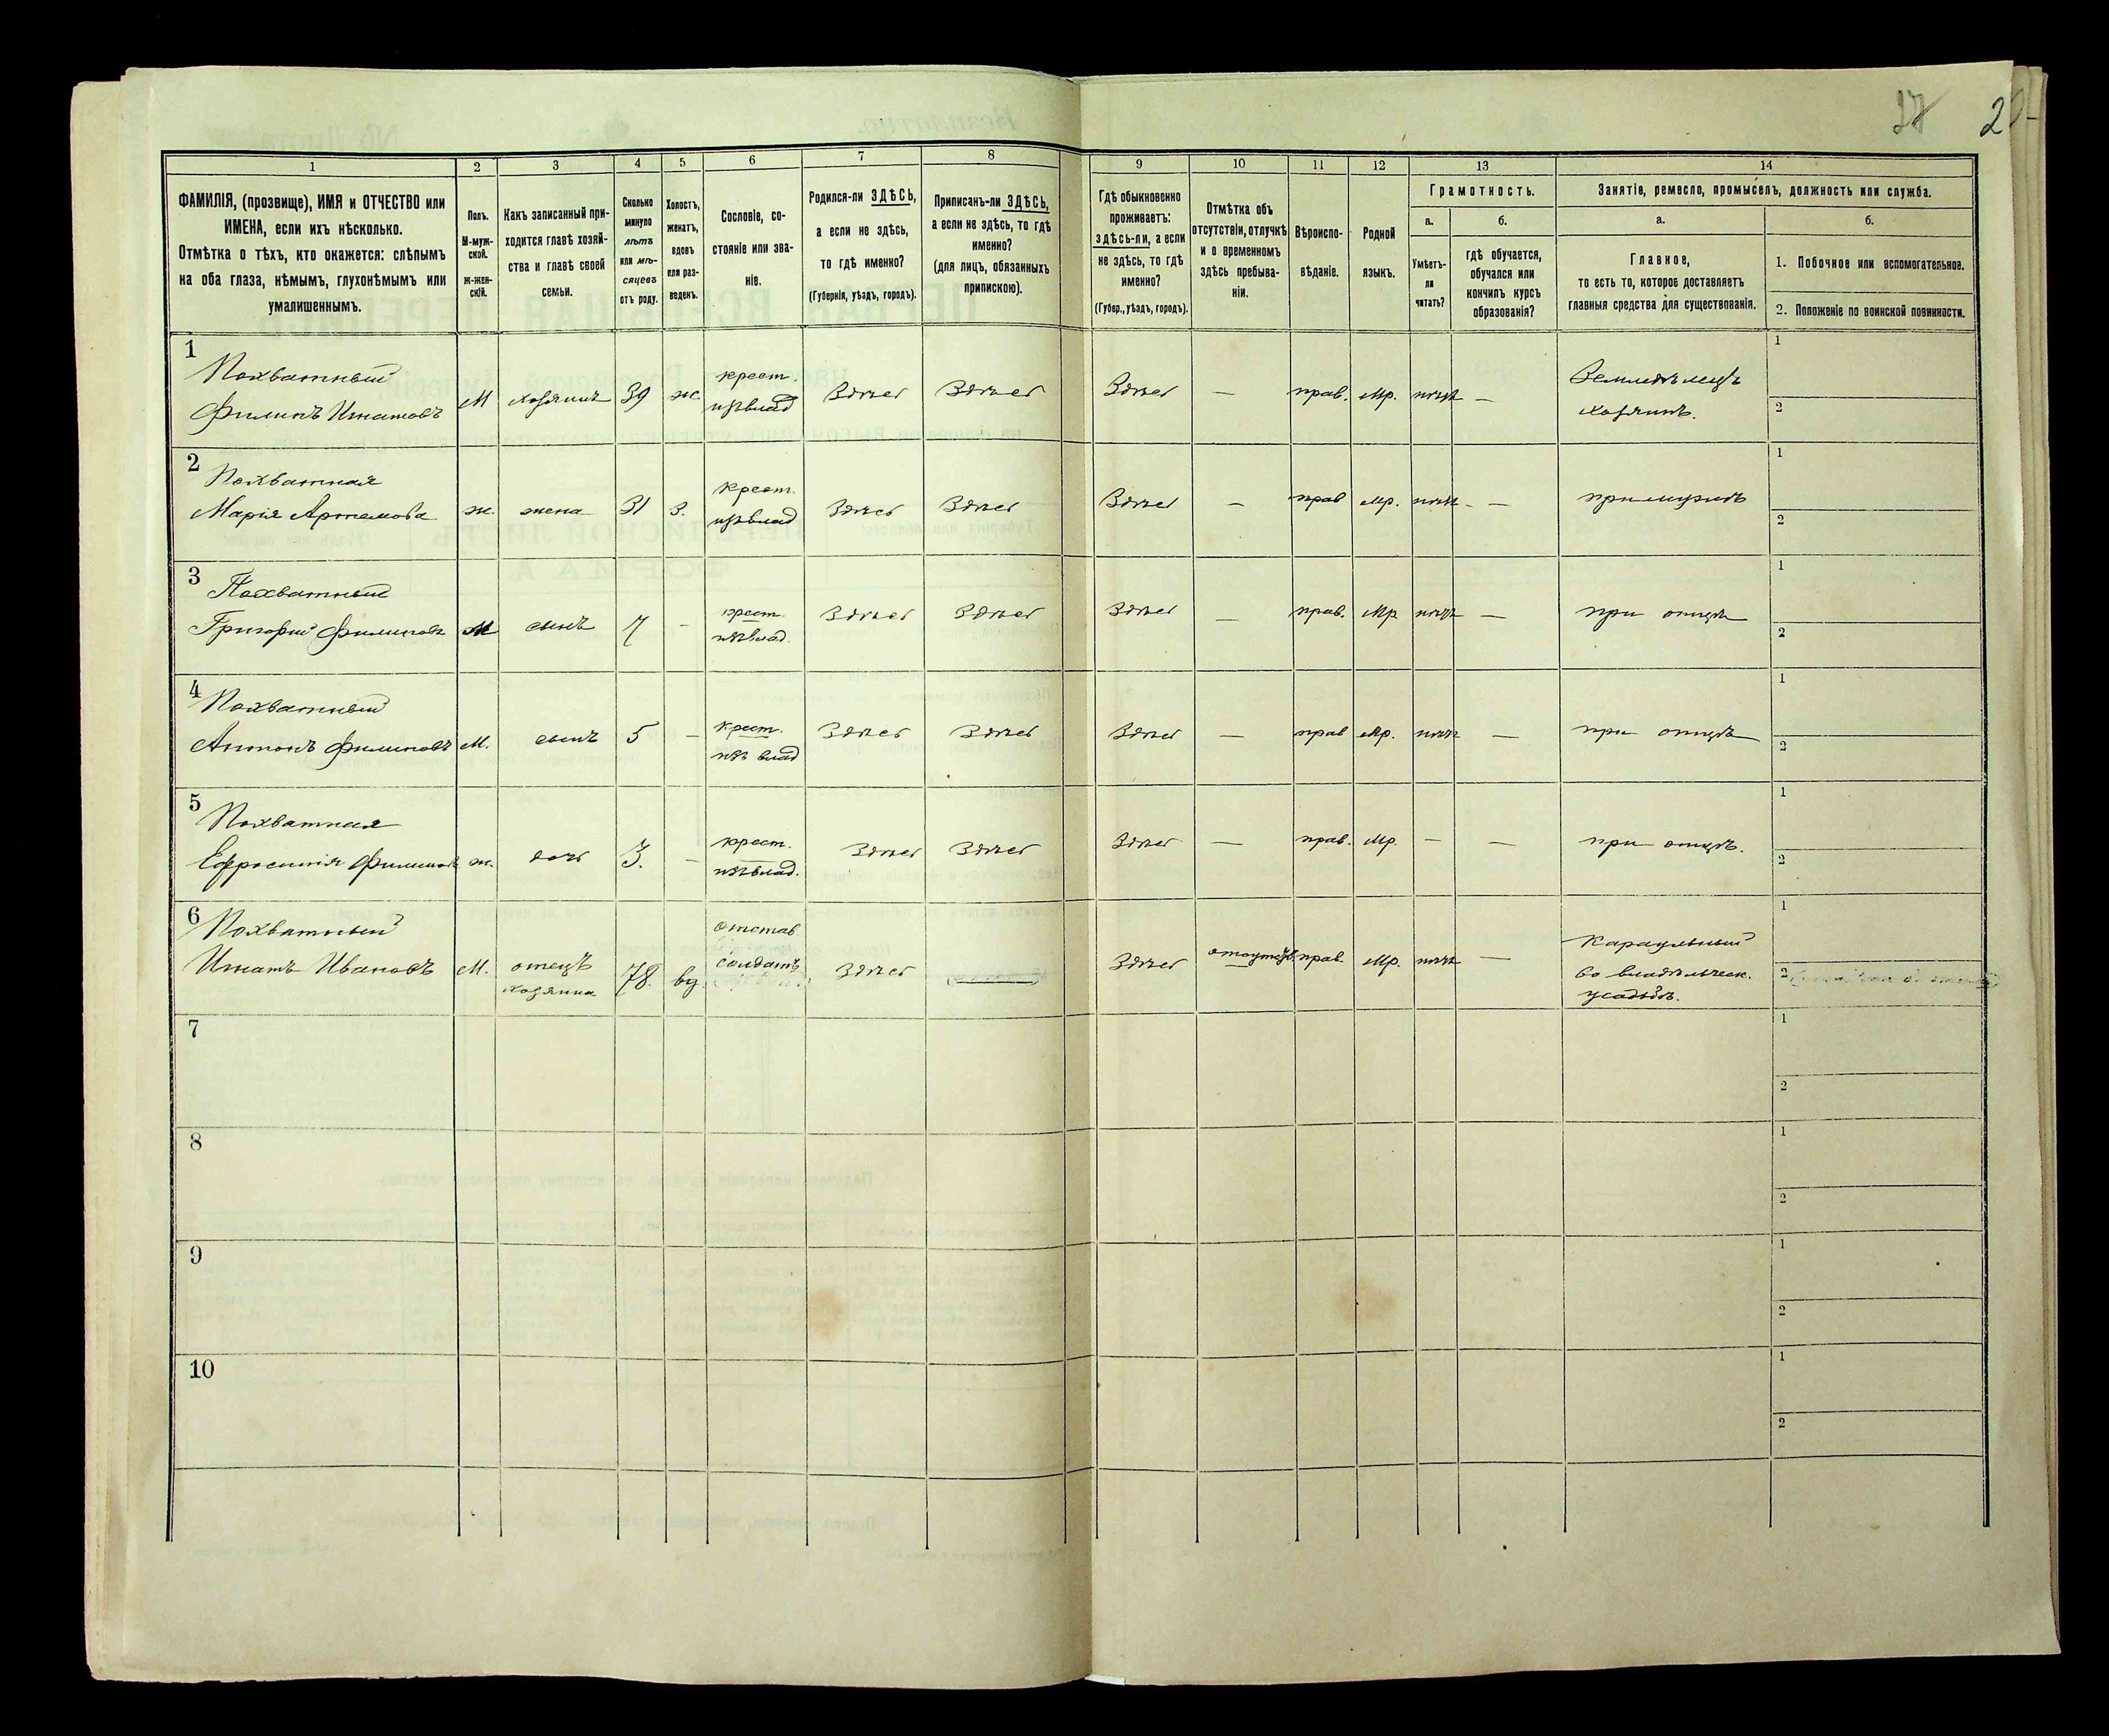 27 20
1 2 3 4 5 6 7 8 9 10 11 12 13 14
ФАМИЛІЯ, (прозвище), ИМЯ и ОТЧЕСТВО или
ИМЕНА, если ихъ нѣсколько.
Отмѣтка о тѣхъ, кто окажется: слѣпымъ
на оба глаза, нѣмымъ, глухонѣмымъ или
умалишеннымъ.
Полъ.
М-муж-
ской.
ж-жен-
скій.
Какъ записанный при-
ходится главѣ хозяй-
ства и главѣ своей
семьи.
Сколько
минуло
лѣтъ
или мѣ-
сяцевъ
отъ роду.
Холостъ,
женатъ,
вдовъ
или раз-
веденъ.
Сословіе, со-
стояніе или зва-
ніе.
Родился-ли ЗДѢСЬ,
а если не здѣсь,
то гдѣ именно?
(Губернія, уѣздъ, городъ).
Приписанъ-ли ЗДѢСЬ,
а если не здѣсь, то гдѣ
именно?
(для лицъ, обязанныхъ
припискою).
Гдѣ обыкновенно
проживаетъ:
здѣсь-ли, а если
не здѣсь, то гдѣ
именно?
(Губер., уѣздъ, городъ).
Отмѣтка объ
отсутствіи, отлучкѣ
и о временномъ
здѣсь пребыва-
ніи.
Вѣроиспо-
вѣданіе.
Родной
языкъ.
Грамотность.
а.
Умѣетъ-
ли
читать?
б.
гдѣ обучается,
обучался или
кончилъ курсъ
образованія?
Занятіе, ремесло, промыселъ, должность или служба.
а.
Главное,
то есть то, которое доставляетъ
главныя средства для существованія.
б.
1. Побочное или вспомогательное.
2. Положеніе по воинской повинности.
1
Похватный
Филипъ Игнатовъ
М
хозяинъ
39
ж.
крест.
изъ влад
Здѣсь
Здѣсь
Здѣсь
—
прав.
Мр.
нѣтъ
—
Земледѣлецъ
хозяинъ.
1
2
2
Похватная
Марія Артемова
ж.
жена
31
з.
крест.
изъ влад
Здѣсь
Здѣсь
Здѣсь
—
прав
Мр.
нѣтъ.
—
при мужѣ
1
2
3
Похватный
Григорій Филиповъ
М
сынъ
7
-
крест.
изъ влад.
Здѣсь
Здѣсь
Здѣсь
—
прав.
Мр
нѣтъ
—
при отцѣ
1
2
4
Похватный
Антонъ Филиповъ
М.
сынъ
5
—
крест.
изъ влад
Здѣсь
Здѣсь
Здѣсь
—
прав
Мр.
нѣтъ
—
при отцѣ
1
2
5
Похватная
Ефросинія Филипов
ж.
дочь
3.
—
крест.
изъ влад.
Здѣсь
Здѣсь
Здѣсь
—
прав.
Мр.
—
—
при отцѣ.
1
2
6
Похватный
Игнатъ Ивановъ
М.
отецъ
хозяина
78.
вд.
отстав
солдатъ
Здѣсь
Здѣсь
прав.
Мр.
нѣтъ
—
Караульный
во владѣльческ.
усадьбѣ.
1
2
7
1
2
8
1
2
9
1
2
10
1
2